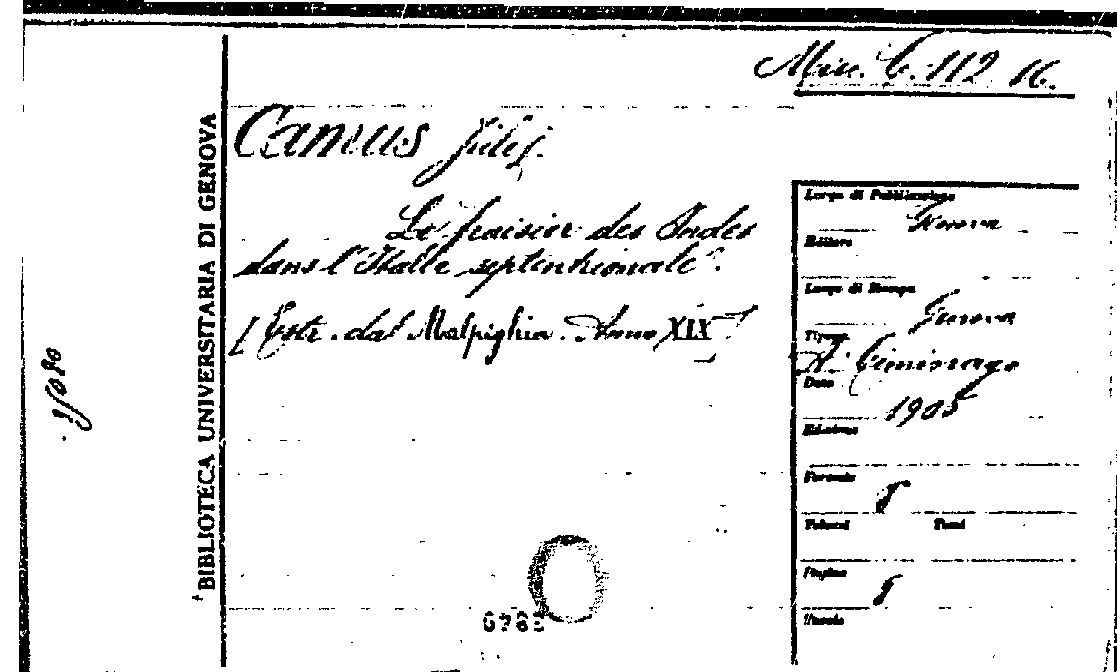 Misc. C. 112 16.
BIBLIOTECA UNIVERSITARIA DI GENOVA
Camus Jules.
Le fraisier des Indes
dans l'Italie septentrionale.
[Estr. dal Malpighia. Anno XIX]
Luogo di Pubblicazione
Genova
Editore
Luogo di Stampa
Genova
Tipogr.
A. Ciminago
Data
1905
Edizione
Formato
8
Volumi Tomi
Pagine
8
Tavole